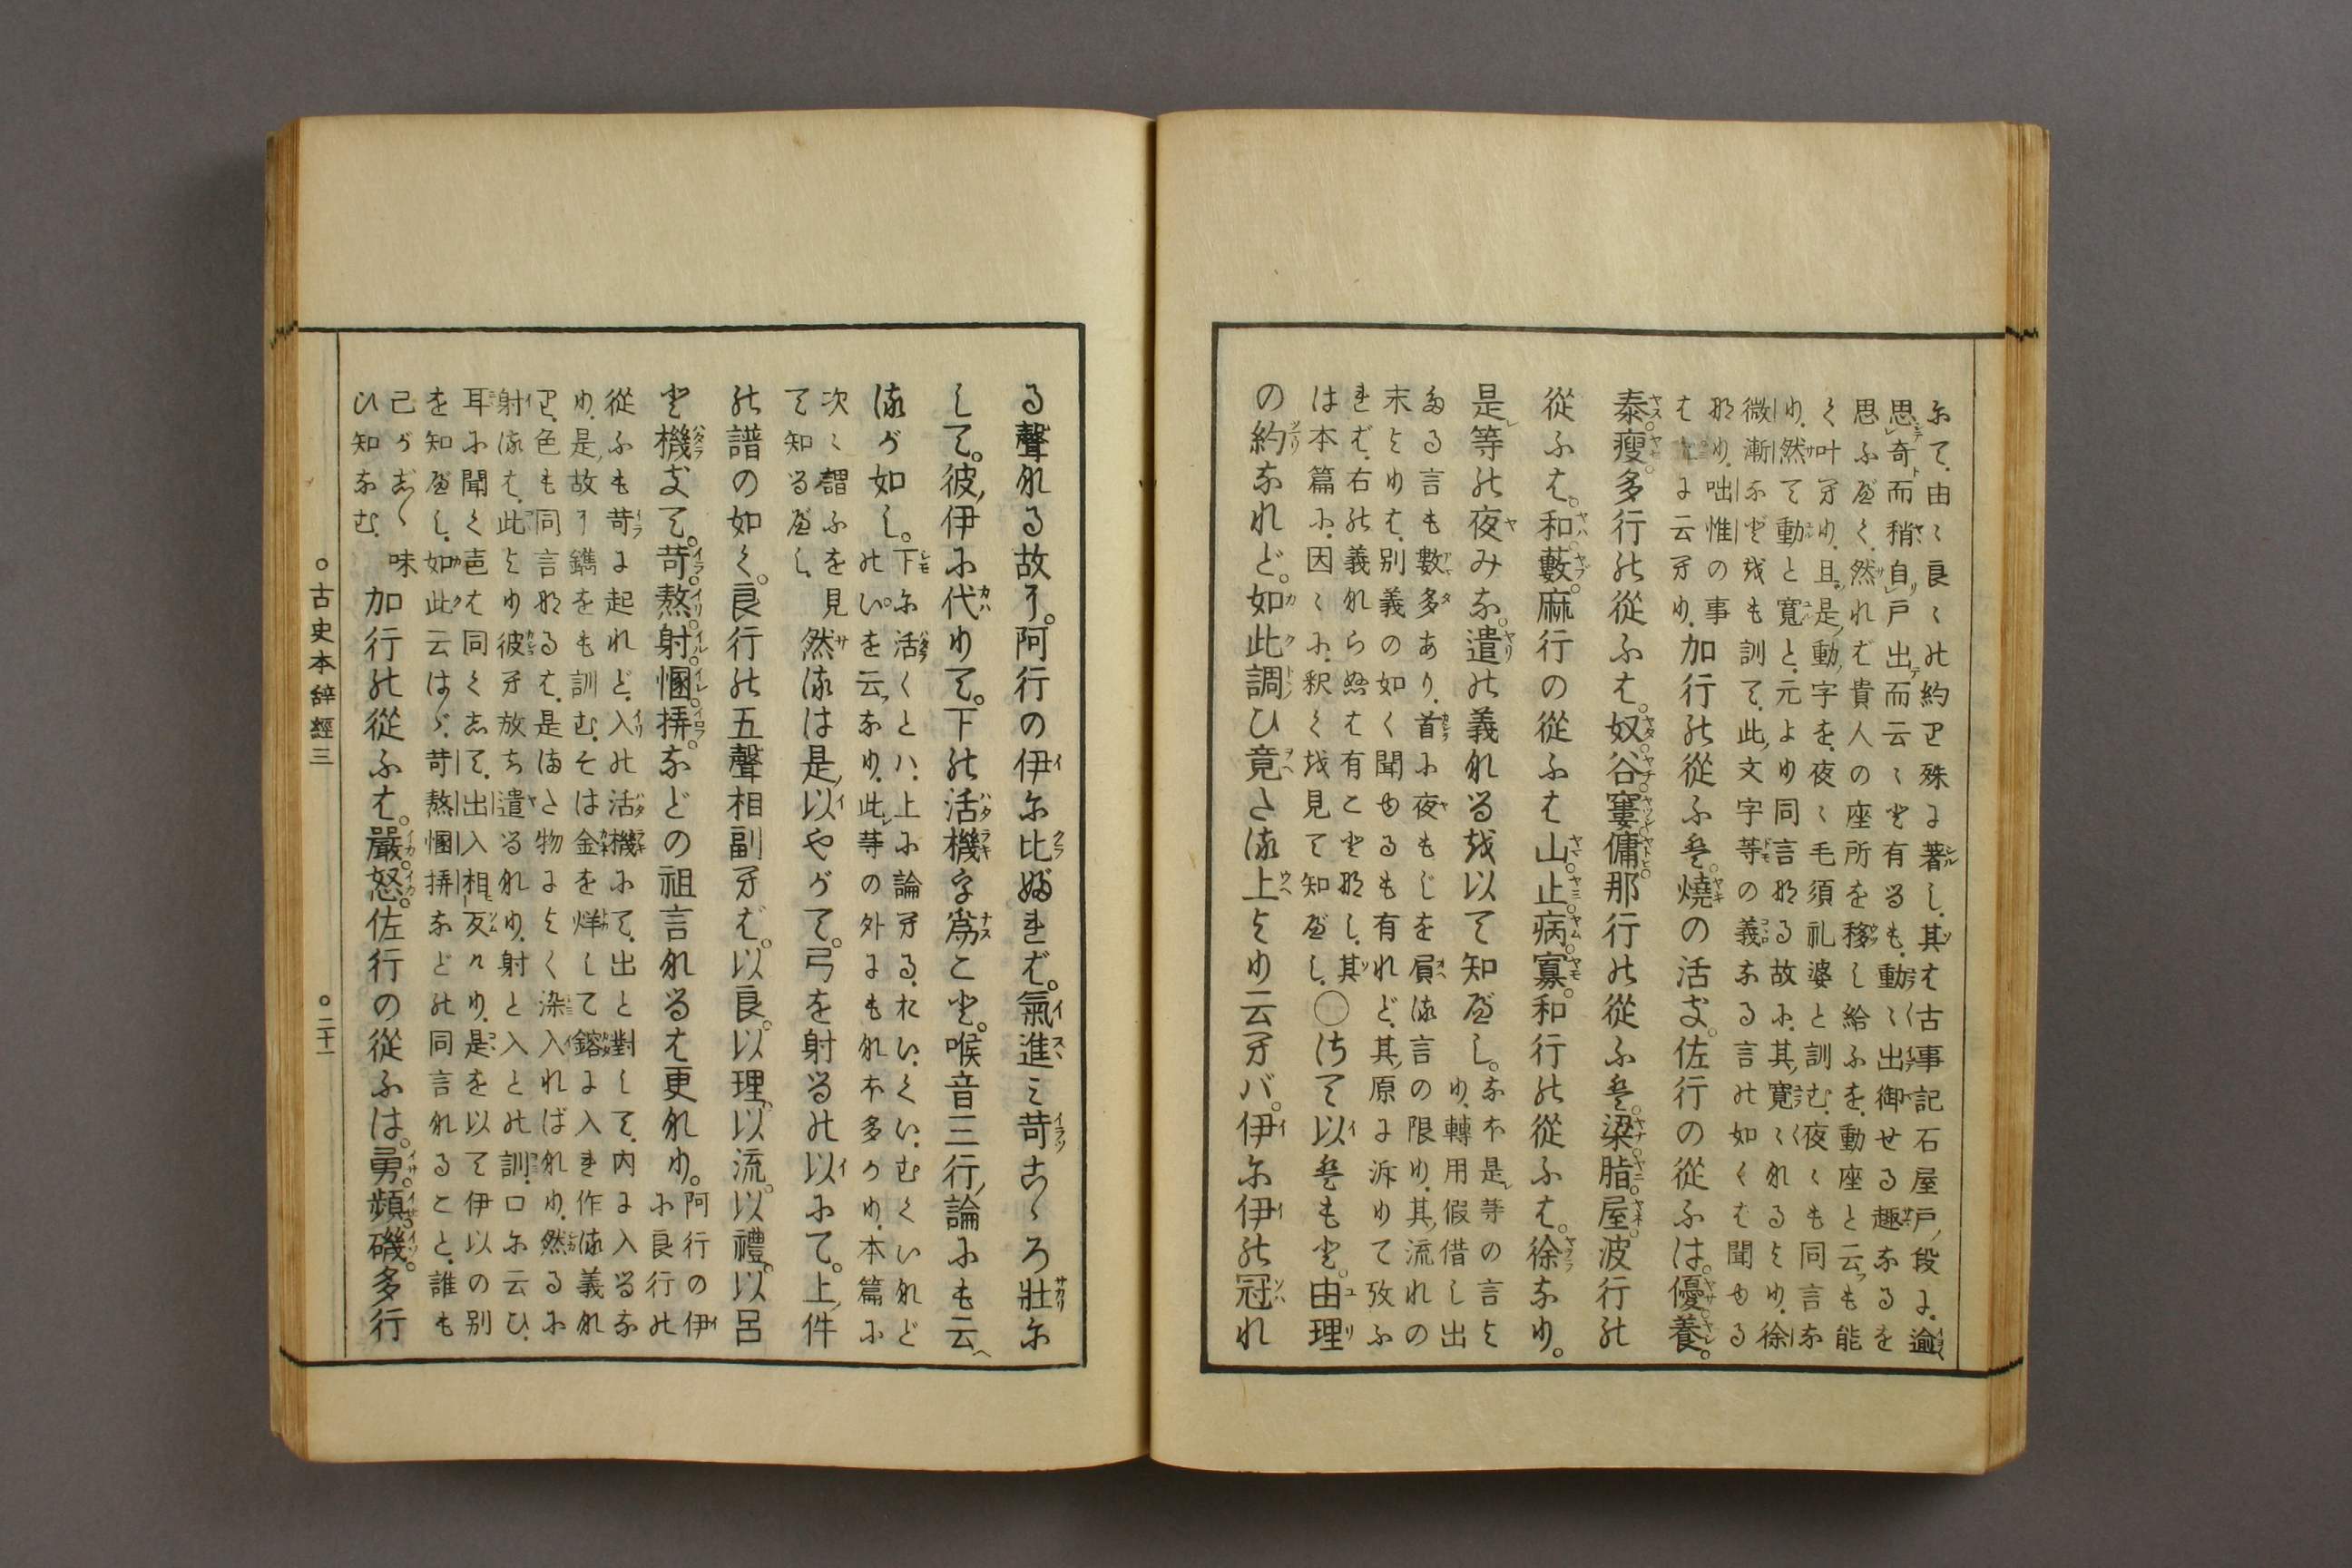 尓て.由〻良〻此約り殊よ著し.其は古事記石屋戸ノ段よ.逾
思奇而稍自戸出而云〻と有るも.動〻出御せる趣なるを
思ふべく.然れば貴人の座所を移し給ふを.動座と云も能
く叶へり.且是ノ動ノ字を.夜〻毛須礼婆と訓む.夜〻も同言な
り.然て動と寛と.元より同言なる故に.其ノ寛〻なるより.徐
微漸など我も訓て.此ノ文字等の義なる言の如くも聞ゆる
なり.咄惟の事
はよ云へり.加行の從ふを.燒の活ま.佐行の從ふは.優養.
泰瘦.多行の從ふは.奴谷窶傭.那行の從ふを.梁脂屋.波行の
從ふは.和藪.麻行の從ふは山.止.病.寡.和行の從ふは.徐なり.
是等の夜みな.遣の義なるを以て知べし.
なほ是等の言よ
り.轉用假借し出
たる言も數多あり.首に夜もじを屓る言の限り.其ノ流れの
末よりは.別義の如く聞ゆるも有れど.其ノ原よ泝りて攷ふ
れば.右の義ならぬは有ことなし.其
は本篇に.因〻に.釈くを見て知べし.〇さて以をもと.由理
の約なれど.如此調ひ竟たる上より云へバ.伊尓伊の冠れ
る聲なる故り.阿行の伊尓比ぶれば.氣進ミ苛こゝろ壯尓
して.彼ノ伊に代りて.下の活機字爲こと.喉音三行ノ論にも云へ
るが如し.
下尓活くとハ.上に論へる.おい.くい.むくいなど
のいを云ふなり.此レ等の外よもなほ多かり.本篇に
次〻謂ふを見
て知るべし.然るは是ノ以やがて.弓を射るの以にて.上ノ件
の譜の如く.良行の五聲相副へば.以良.以理.以流.以禮.以呂
と機まて.苛.熬.射.慖.挵.などの祖言なるは更なり.
阿行の伊
に良行の
從ふも苛よ起れど.入の活機にて.出と對して.内よ入るな
り.是ノ故り鐫をも訓む.そは金を烊して鎔よ入れ作る義な
り.色も同言なるは.是また物よよく染入ればなり.然るに
射るは.此より彼へ放ち遣るなり.射と入との訓.口尓云ひ.
耳に聞く邑は同くして.出入相反けり.是を以て伊以の別
を知べし.如此云はゞ.苛熬慖挵などの同言なること.誰も
己がじゝ味
ひ知なむ.加行の從ふは.嚴.怒.佐行の從ふは.勇.頻.磯.多行
〇古史本辭經三 〇二十一